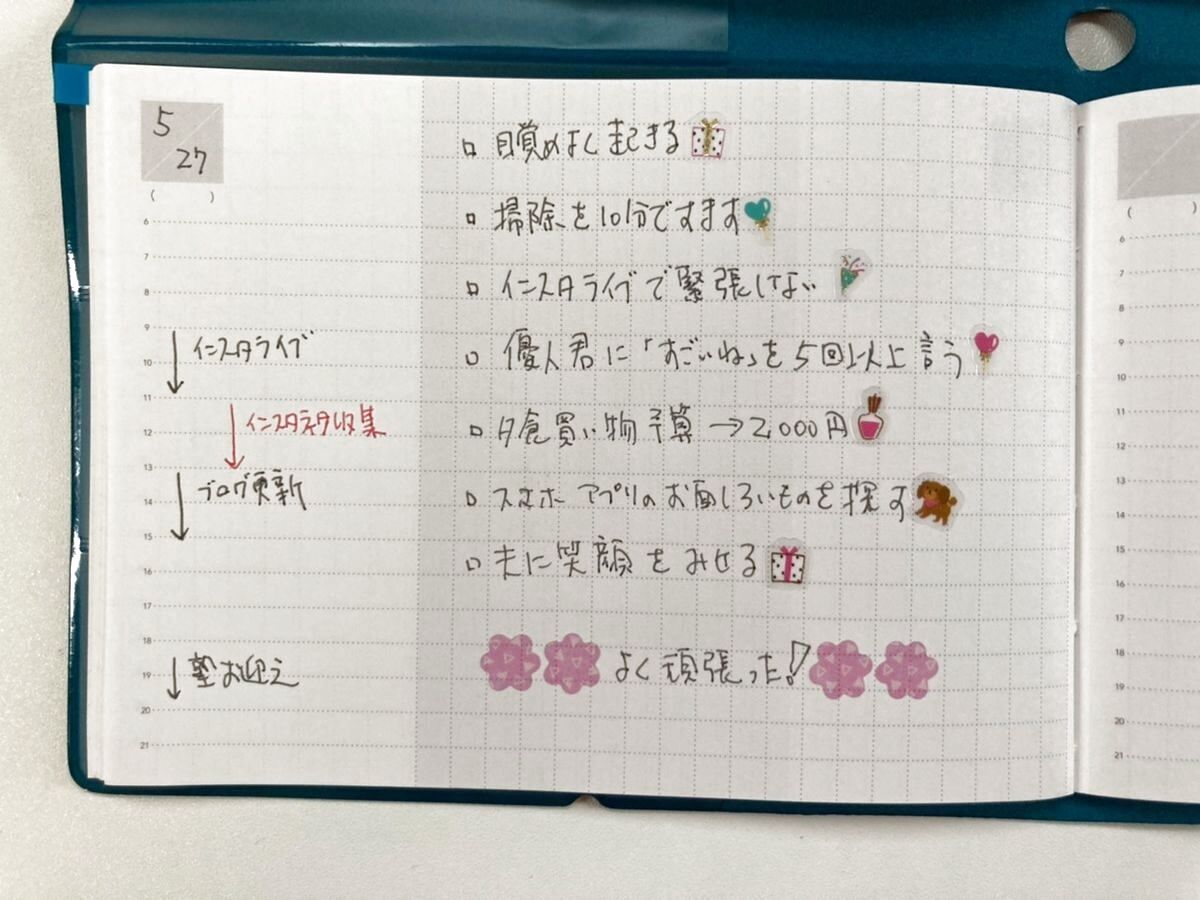 5
27
( )
6
7
8
9
10
11
12
13
14
15
16
17
18
19
20
21
インスタライブ
インスタネタ収集
ブログ更新
塾お迎え
□ 目覚めよく起きる
□ 掃除を10分ですます
□ インスタライブで緊張しない
□ 優人君に「すごいね」を5回以上言う
□ 夕食買い物予算→2,000円
□ スマホアプリのお面しろいものを探す
□ 夫に笑顔をみせる
よく頑張った!
( )
6
7
8
9
10
11
12
13
14
15
16
17
18
19
20
21